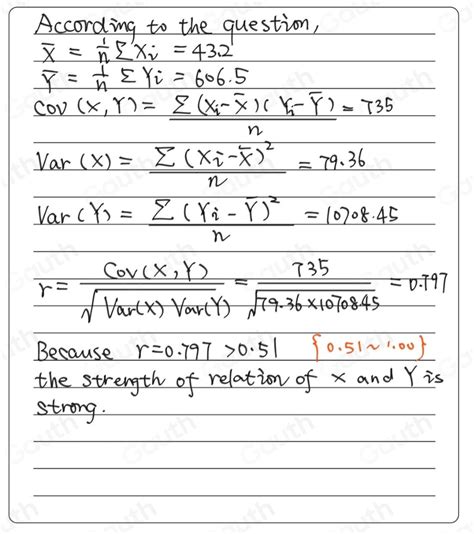 According to the question,
X̄ = 1/n Σ Xi = 43.2
Ȳ = 1/n Σ Yi = 606.5
Cov (X, Y) = Σ (Xi - X̄) (Yi - Ȳ) / n = 735
Var (X) = Σ (Xi - X̄)² / n = 79.36
Var (Y) = Σ (Yi - Ȳ)² / n = 10708.45
r = Cov (X, Y) / √Var(X) Var(Y) = 735 / √79.36 × 10708.45 = 0.797
Because r = 0.797 > 0.51 {0.51 ~ 1.00}
the strength of relation of X and Y is
strong.